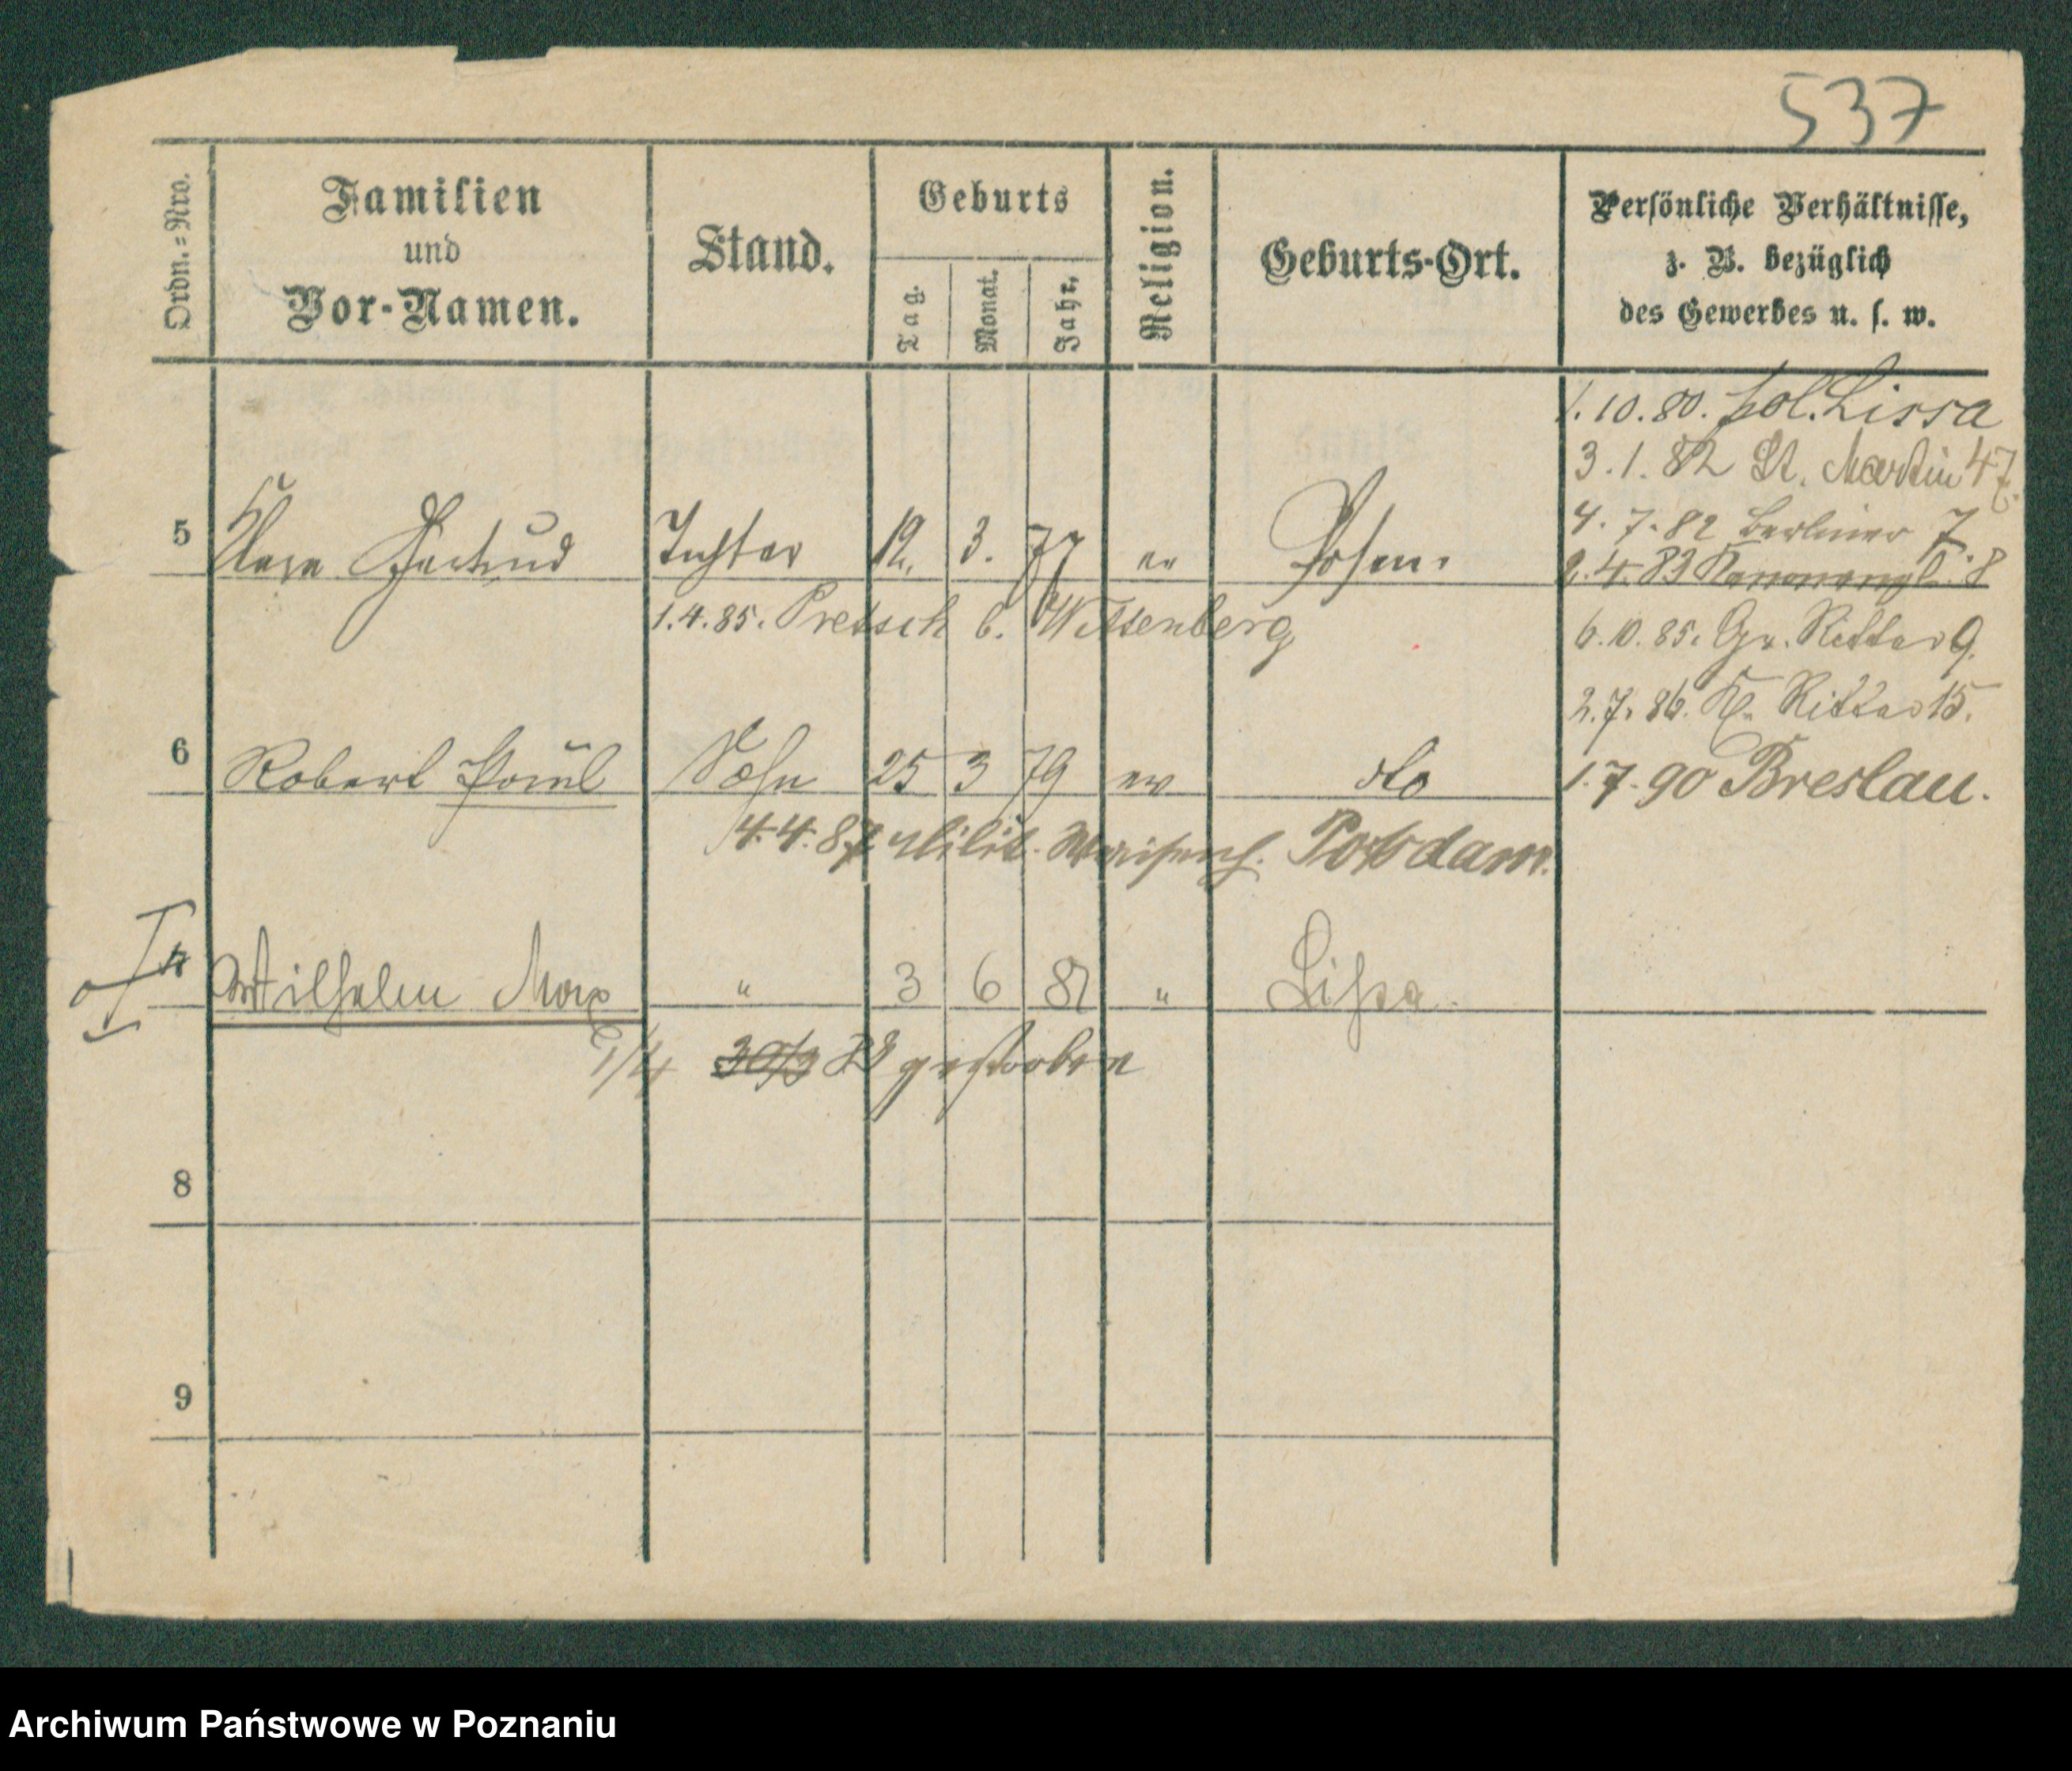 537
Ordn.=Nro.
Familien
und
Vor-Namen.
Stand.
Geburts
Tag.
Monat.
Jahr.
Religion.
Geburts-Ort.
Persönliche Verhältnisse,
z. B. bezüglich
des Gewerbes u. s. w.
1.10.80. pol. Lissa
3.1.82 St. Martin 47.
4.7.82 Berliner 7.
5 Clara Gertrud Tochter 12. 3. 77 ev Posen.
2.4.83 Kanonenpl. 8
1.4.85. Pretsch b. Wittenberg
6.10.85. Gr. Ritter 9.
2.7.86. Kl. Ritter 15.
6 Robert Paul Sohn 25 3 79 ev do
1.7.90 Breslau.
4.4.87 Milit. Waisenh. Potsdam.
Wilhelm Max " 3 6 81 " Lissa.
1/4 30/3 83 gestorben
8
9
Archiwum Państwowe w Poznaniu